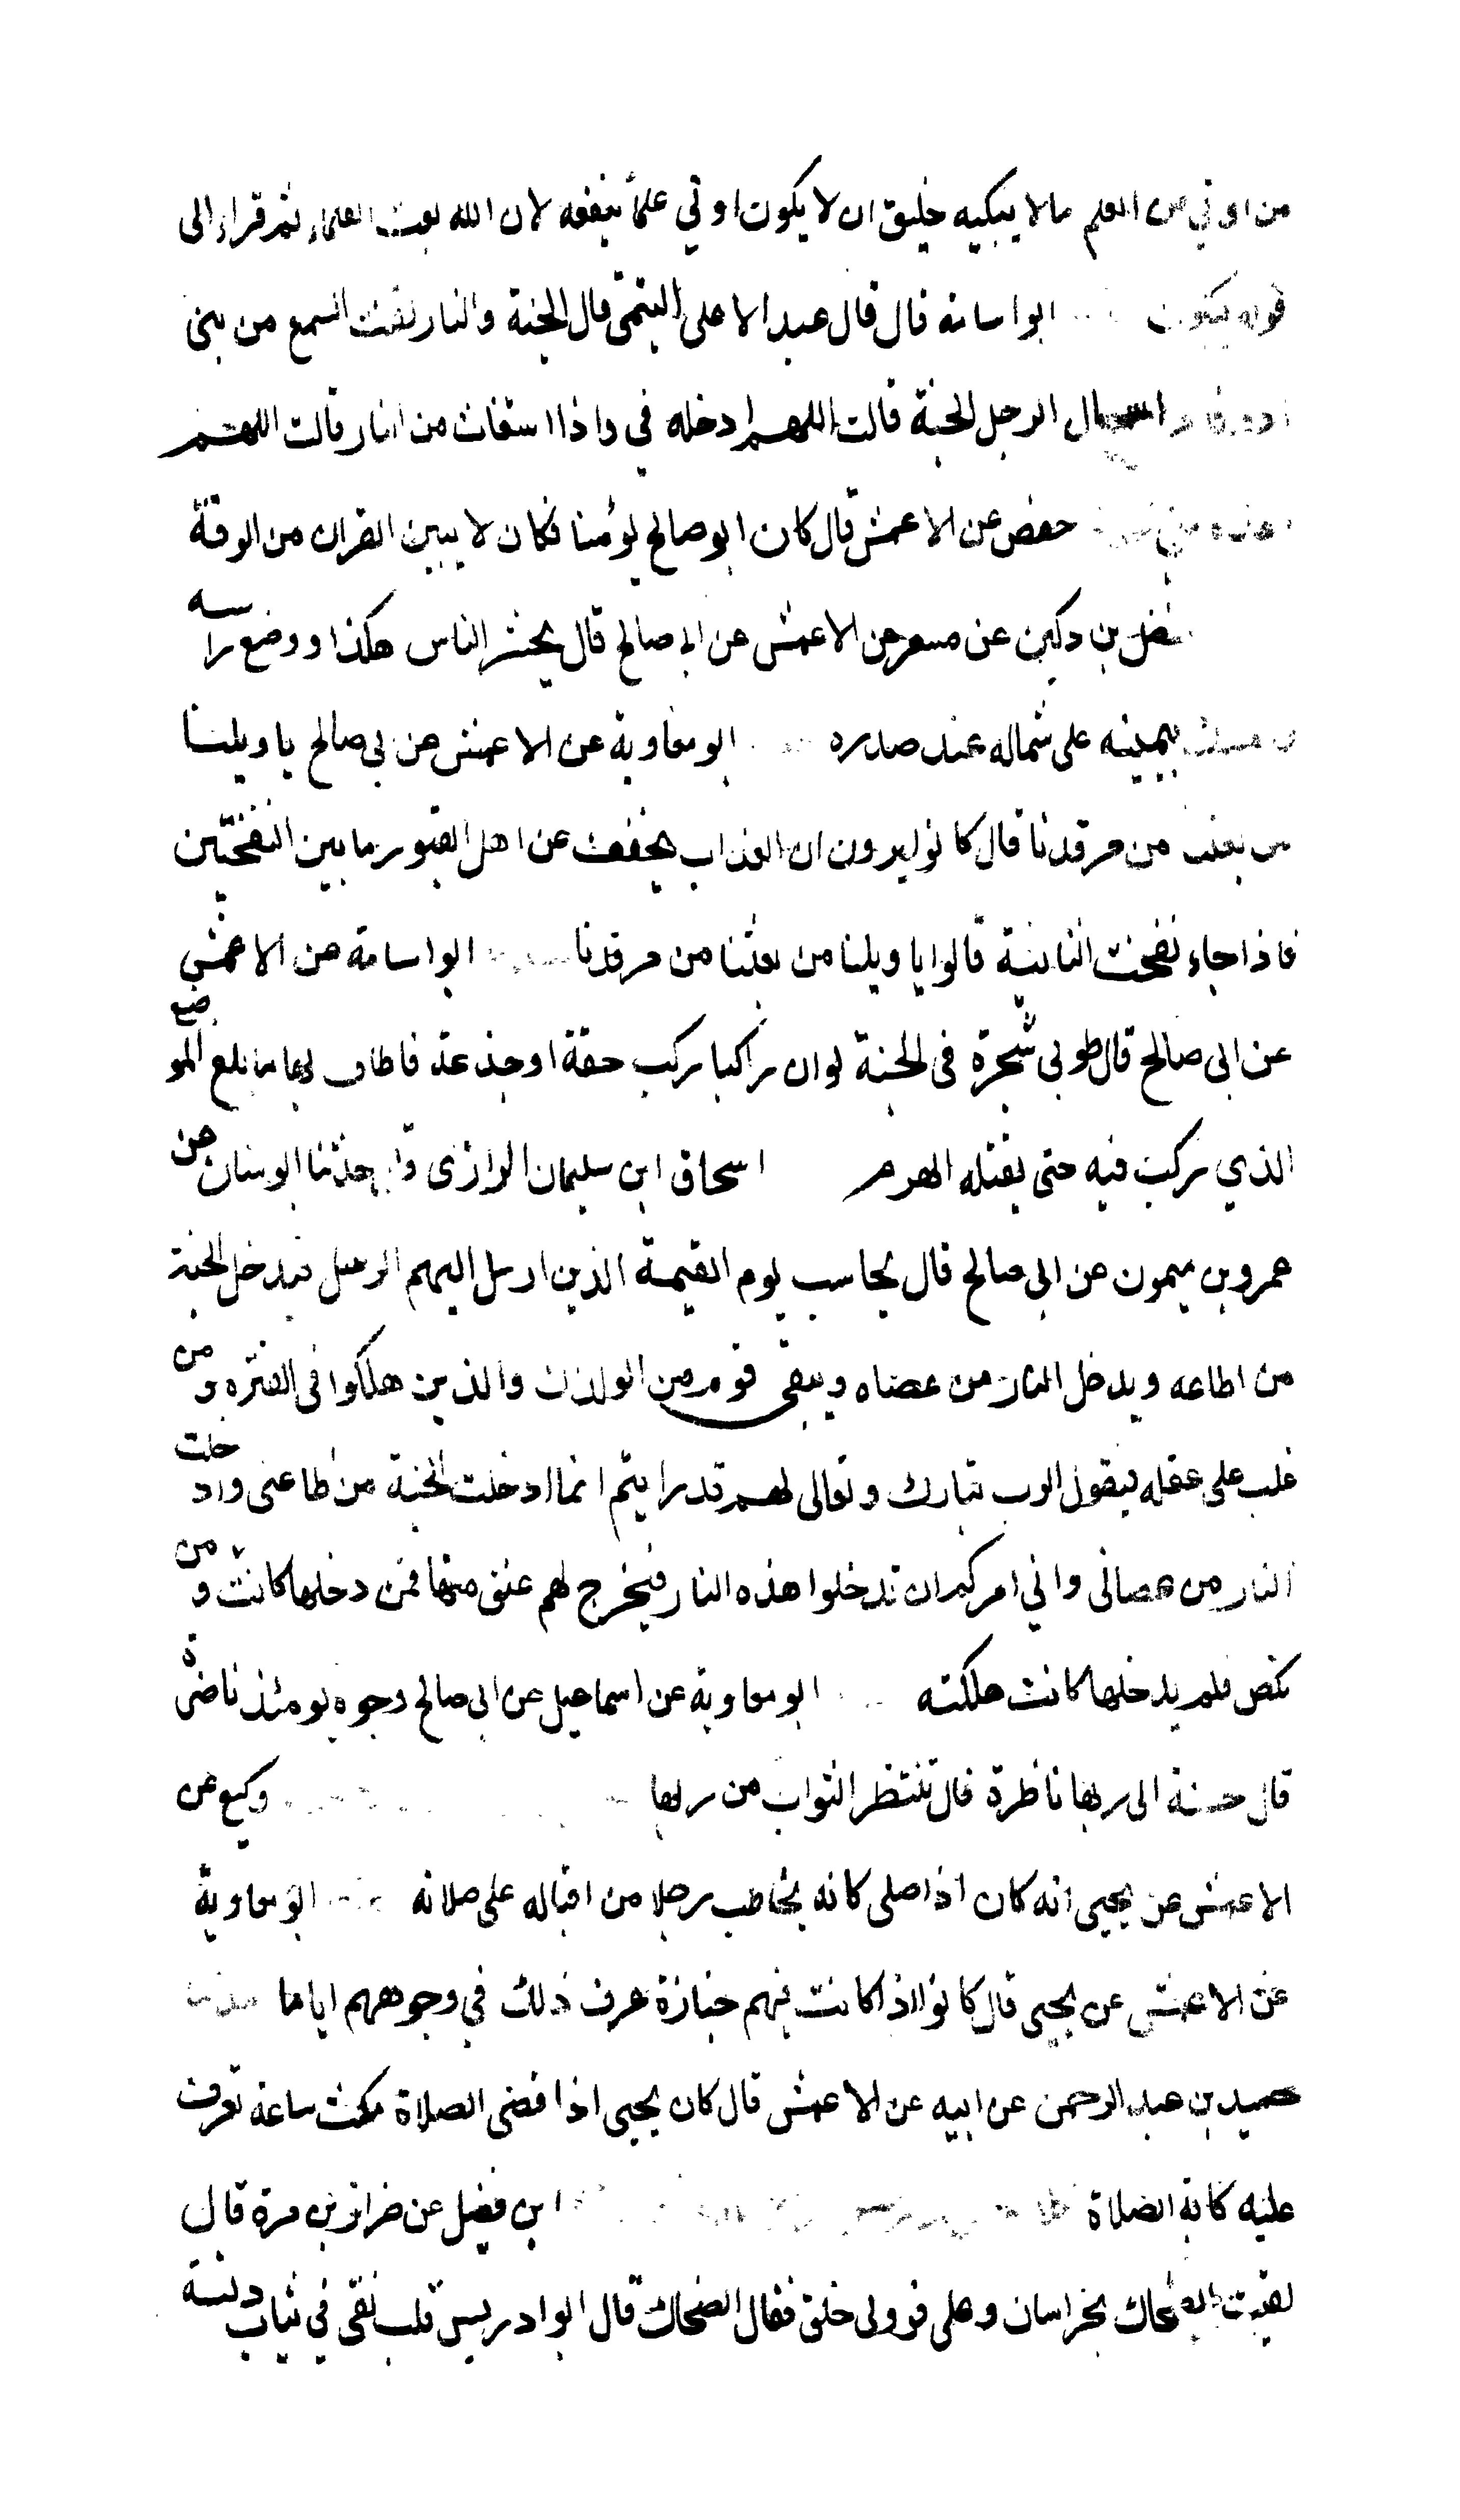 من اوتي من العلم ما لا يبكيه خليق ان لا يكون اوتي علماً ينفعه لان الله نعت العلماء ثم قراء الى
قوله يبكون ابو اسامة قال قال عبد الاعلى التيمي قال الجنة والنار لقنت السمع من بني
ادم فاذا سال الرجل الجنة قالت اللهم ادخله في واذا استعاذ من النار قالت اللهم
اعذه مني حفص عن الاعمش قال كان ابو صالح يؤمنا فكان لا يبين القران من الرقة
فضل بن دكين عن مسعر عن الاعمش عن ابي صالح قال يحشر الناس هكذا ووضع راسه
وامسك بيمينه على شماله عند صدره ابو معاوية عن الاعمش عن بي صالح يا ويلنا
من بعثنا من مرقدنا قال كانوا يرون ان العذاب يخفف عن اهل القبور ما بين النفختين
فاذا جاء نفخت الثانية قالوا يا ويلنا من بعثنا من مرقدنا ابو اسامة عن الاعمش
عن ابي صالح قال طوبى شجرة في الجنة لو ان راكبا يركب حقة او جذعة فاطاف بها ما بلغ الموضع
الذي يركب فيه حتى يقتله الهرم اسحاق ابن سليمان الرازي قال حدثنا ابو سنان عن
عمرو بن ميمون عن ابي صالح قال يحاسب يوم القيمة الذين ارسل اليهم الرسل فيدخل الجنة
من اطاعه ويدخل النار من عصاه ويبقى قوم من الولدان والذين هلكوا في الفترة ومن
غلب على عقله فيقول الرب تبارك وتعالى لهم قد رايتم انما ادخلت الجنة من اطاعني وادخلت
النار من عصاني واني امركم ان تدخلوا هذه النار فيخرج لهم عنق منها فمن دخلها كانت ومن
نكص فلم يدخلها كانت هلكته ابو معاوية عن اسماعيل عن ابي صالح وجوه يومئذ ناضرة
قال حسنة الى ربها ناظرة قال تنتظر الثواب من ربها وكيع عن
الاعمش عن يحيى انه كان اذا صلى كانه يخاطب رجلا من اقباله على صلاته ابو معاوية
عن الاعمش عن يحيى قال كانوا اذا كانت فيهم جنازة عرف ذلك في وجوههم اياما حدثنا
حميد بن عبد الرحمن عن ابيه عن الاعمش قال كان يحيى اذا قضى الصلاة مكث ساعة تعرف
عليه كابة الصلاة ابن فضيل عن ضرار بن مرة قال
لقيت الضحاك بخراسان وعلي فرو لي خلق فقال الضحاك قال ابو ادريس قلب نقي في ثياب دنسة